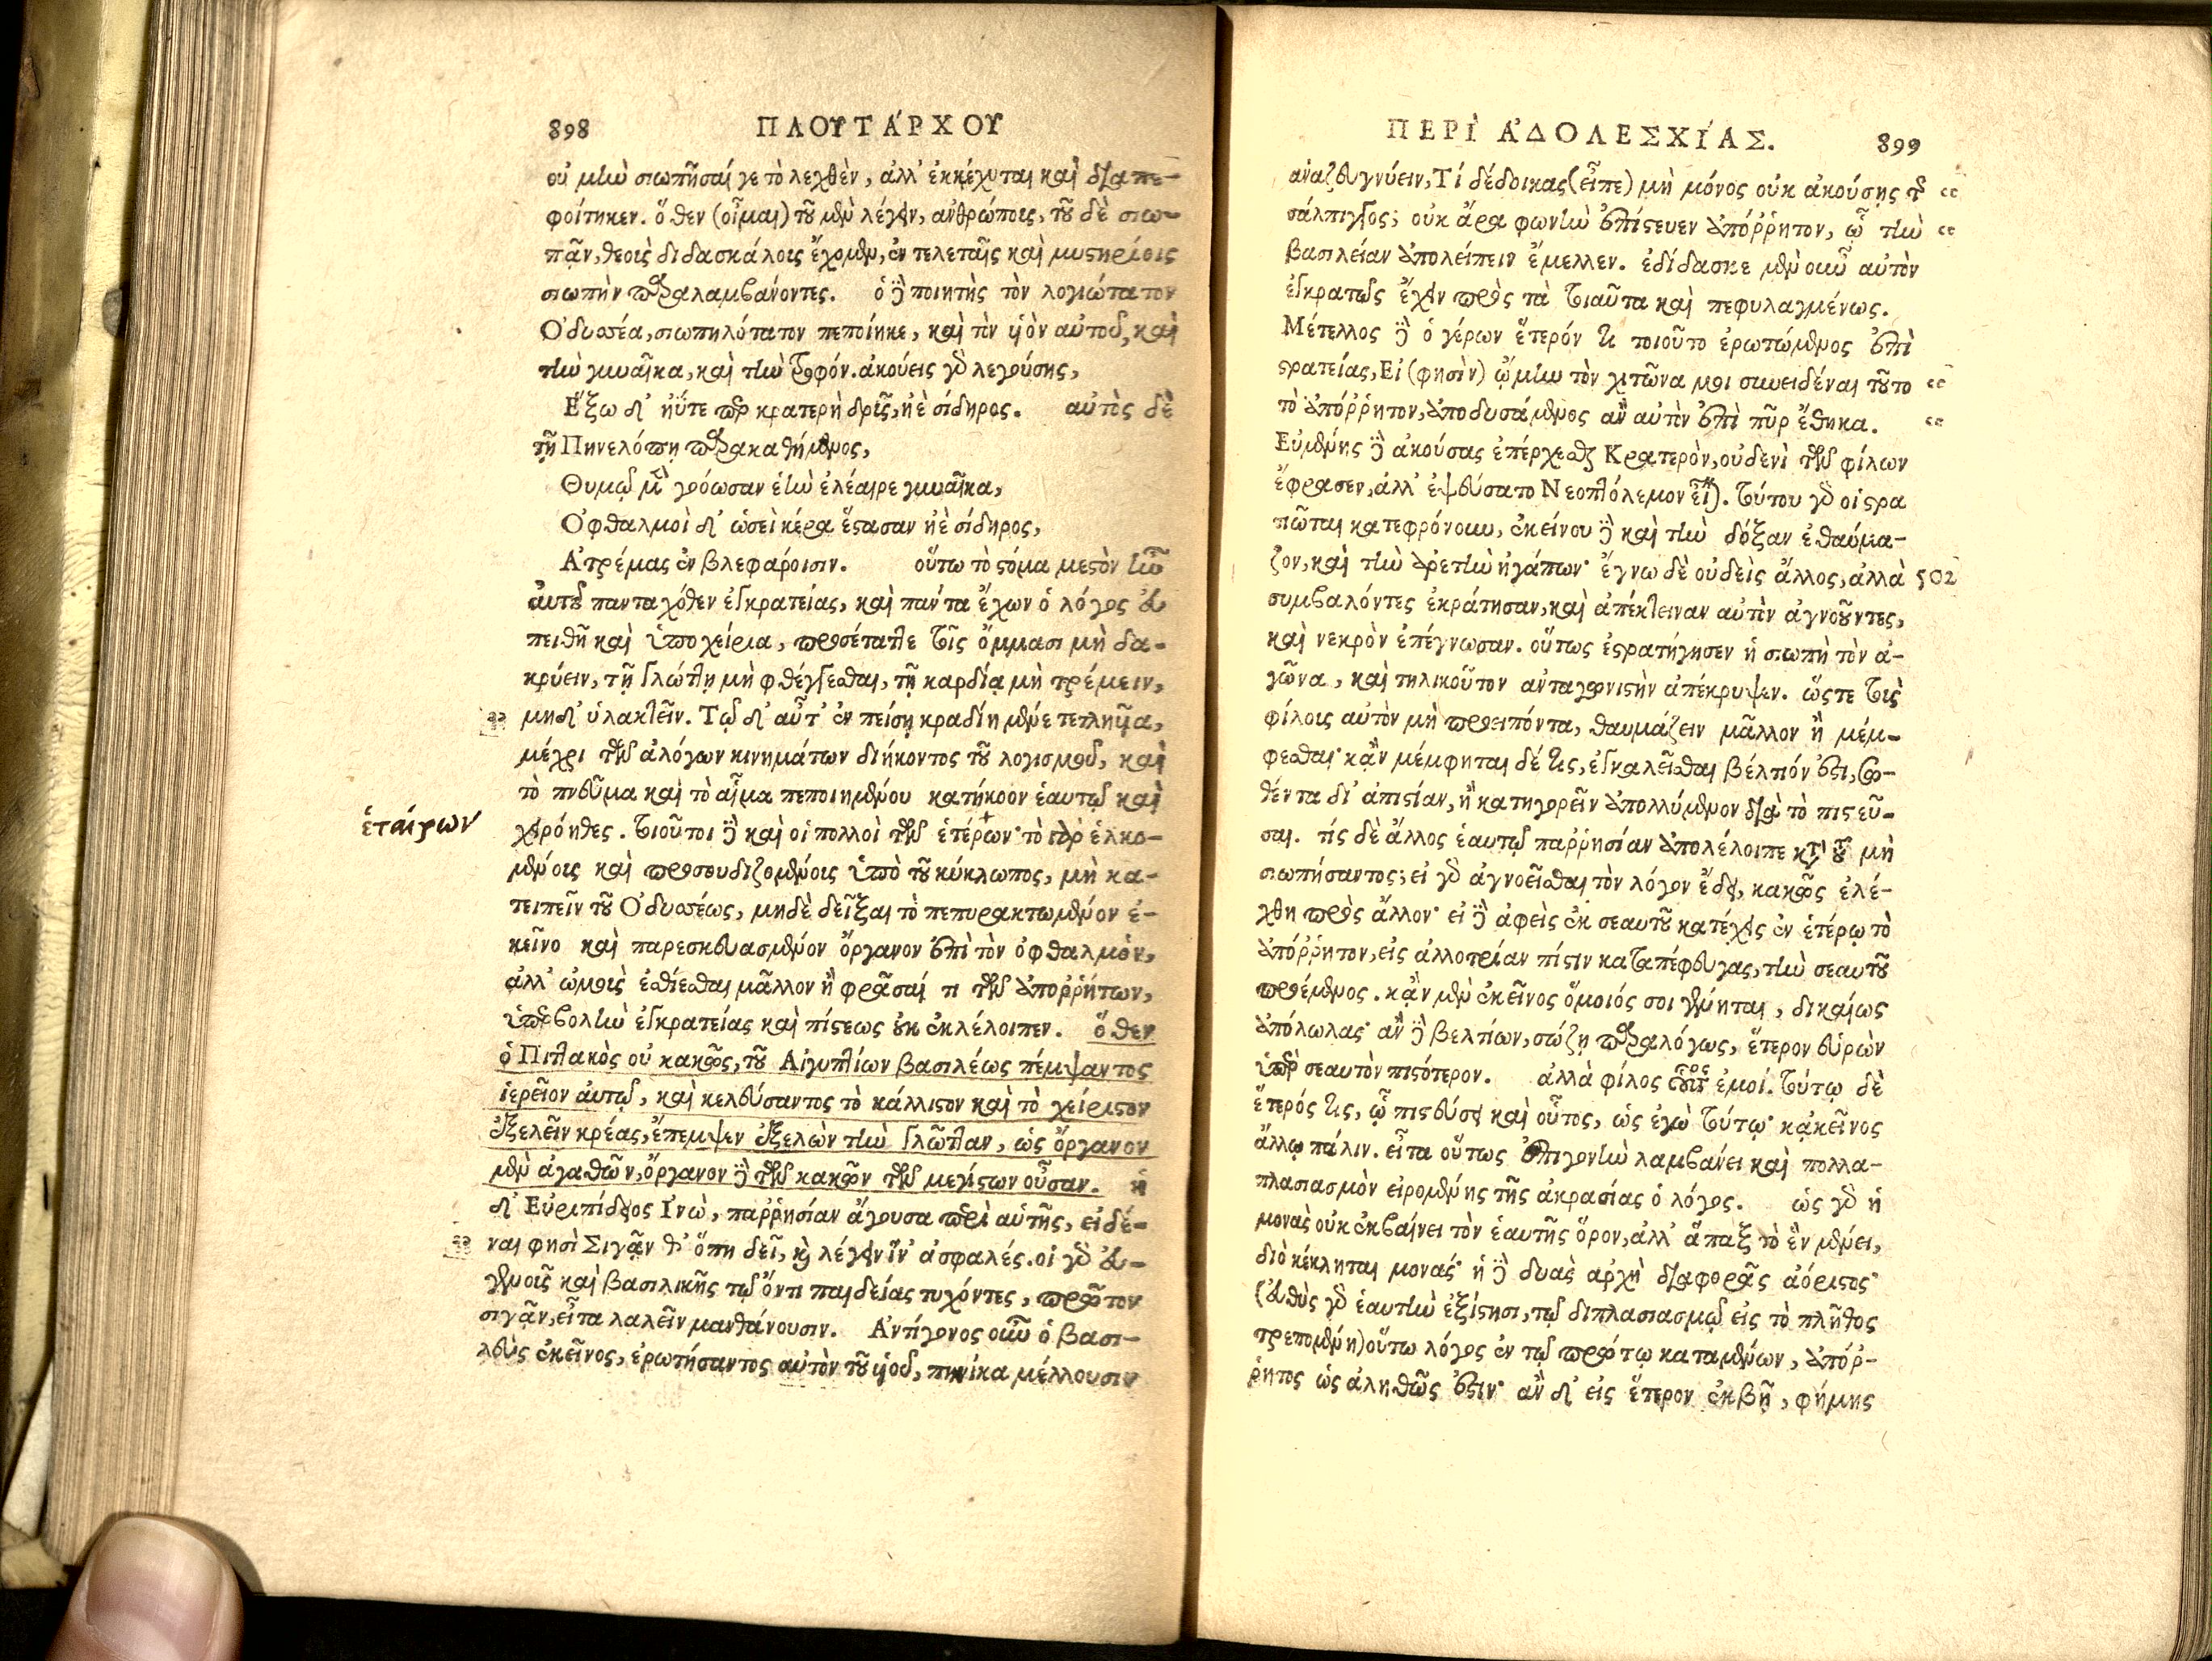 898 ΠΛΟΥΤΑΡΧΟΥ
οὐ μὴν σιωπῆσαί γε τὸ λεχθὲν, ἀλλ' ἐκκέχυται καὶ διαπε-
φοίτηκεν. ὅθεν (οἶμαι) τοῦ μὲν λέγειν, ἀνθρώποις, τοῦ δὲ σιω-
πᾷν, θεοὺς διδασκάλοις ἔχομεν, ἐν τελεταῖς καὶ μυστηρίοις
σιωπὴν παραλαμβάνοντες. ὁ δὲ ποιητὴς τὸν λογιώτατον
Ὀδυσσέα, σιωπηλότατον πεποίηκε, καὶ τὸν υἱὸν αὐτοῦ, καὶ
τὴν γυναῖκα, καὶ τὴν τροφόν. ἀκούεις γὰρ λεγούσης,
Ἕξω δ' ἠΰτε περ κρατερὴ δρῦς, ἠὲ σίδηρος. αὐτὸς δὲ
τῇ Πηνελόπῃ παρακαθήμενος,
Θυμῷ μὲν γοόωσαν ἑὴν ἐλέαιρε γυναῖκα,
Ὀφθαλμοὶ δ' ὡσεὶ κέρα ἕστασαν ἠὲ σίδηρος,
Ἀτρέμας ἐν βλεφάροισιν. οὕτω τὸ στόμα μεστὸν ἦν
αὐτοῦ πανταχόθεν ἐγκρατείας, καὶ πάντα ἔχων ὁ λόγος εὐ
πειθῆ καὶ ὑποχείρια, προσέταττε τοῖς ὄμμασι μὴ δα-
κρύειν, τῇ γλώττῃ μὴ φθέγγεσθαι, τῇ καρδίᾳ μὴ τρέμειν,
μηδ' ὑλακτεῖν. Τῷ δ' αὖτ' ἐν πείσῃ κραδίη μένε τετληυῖα,
μέχρι τῶν ἀλόγων κινημάτων διήκοντος τοῦ λογισμοῦ, καὶ
τὸ πνεῦμα καὶ τὸ αἷμα πεποιημένου κατήκοον ἑαυτῷ καὶ
ἑταίρων
χειρόηθες. τοιοῦτοι δὲ καὶ οἱ πολλοὶ τῶν ἑτέρων· τὸ γὰρ ἑλκο-
μένοις καὶ προσουδιζομένοις ὑπὸ τοῦ κύκλωπος, μὴ κα-
τειπεῖν τοῦ Ὀδυσσέως, μηδὲ δεῖξαι τὸ πεπυρακτωμένον ἐ-
κεῖνο καὶ παρεσκευασμένον ὄργανον ἐπὶ τὸν ὀφθαλμὸν,
ἀλλ' ὠμοὺς ἐσθίεσθαι μᾶλλον ἢ φράσαί τι τῶν ἀπορρήτων,
ὑπερβολὴν ἐγκρατείας καὶ πίστεως οὐκ ἐκλέλοιπεν. ὅθεν
ὁ Πιττακὸς οὐ κακῶς, τοῦ Αἰγυπτίων βασιλέως πέμψαντος
ἱερεῖον αὐτῷ, καὶ κελεύσαντος τὸ κάλλιστον καὶ τὸ χείριστον
ἐξελεῖν κρέας, ἔπεμψεν ἐξελὼν τὴν γλῶτταν, ὡς ὄργανον
μὲν ἀγαθῶν, ὄργανον δὲ τῶν κακῶν τῶν μεγίστων οὖσαν. ἡ
δ' Εὐριπίδειος Ἰνὼ, παρρησίαν ἄγουσα περὶ αὑτῆς, εἰδέ-
ναι φησὶ Σιγᾷν θ' ὅπη δεῖ, καὶ λέγειν ἵν' ἀσφαλές. οἱ γὰρ εὐ-
γενοῦς καὶ βασιλικῆς τῷ ὄντι παιδείας τυχόντες, πρῶτον
σιγᾷν, εἶτα λαλεῖν μανθάνουσιν. Ἀντίγονος οὖν ὁ βασι-
λεὺς ἐκεῖνος, ἐρωτήσαντος αὐτὸν τοῦ υἱοῦ, πηνίκα μέλλουσιν
ΠΕΡΙ ἈΔΟΛΕΣΧΙΑΣ. 899
ἀναζευγνύειν, Τί δέδοικας (εἶπε) μὴ μόνος οὐκ ἀκούσῃς τῆς “
σάλπιγγος; οὐκ ἄρα φωνὴν ἐπίστευεν ἀπόρρητον, ᾧ τὴν “
βασιλείαν ἀπολείπειν ἔμελλεν. ἐδίδασκε μὲν οὖν αὐτὸν
ἐγκρατῶς ἔχειν πρὸς τὰ τοιαῦτα καὶ πεφυλαγμένως.
Μέτελλος δὲ ὁ γέρων ἕτερόν τι τοιοῦτο ἐρωτώμενος ἐπὶ
στρατείας, Εἰ (φησὶν) ᾤμην τὸν χιτῶνα μοι συνειδέναι τοῦτο “
τὸ ἀπόρρητον, ἀποδυσάμενος ἂν αὐτὸν ἐπὶ πῦρ ἔθηκα. “
Εὐμένης δὲ ἀκούσας ἐπέρχεσθαι Κρατερὸν, οὐδενὶ τῶν φίλων
ἔφρασεν, ἀλλ' ἐψεύσατο Νεοπτόλεμον εἶναι. τούτου γὰρ οἱ στρα
τιῶται κατεφρόνουν, ἐκείνου δὲ καὶ τὴν δόξαν ἐθαύμα-
ζον, καὶ τὴν ἀρετὴν ἠγάπων· ἔγνω δὲ οὐδεὶς ἄλλος, ἀλλὰ 502
συμβαλόντες ἐκράτησαν, καὶ ἀπέκτειναν αὐτὸν ἀγνοοῦντες,
καὶ νεκρὸν ἐπέγνωσαν. οὕτως ἐστρατήγησεν ἡ σιωπὴ τὸν ἀ-
γῶνα, καὶ τηλικοῦτον ἀνταγωνιστὴν ἀπέκρυψεν. ὥστε τοὺς
φίλοις αὐτὸν μὴ προειπόντα, θαυμάζειν μᾶλλον ἢ μέμ-
φεσθαι· κἂν μέμφηται δέ τις, ἐγκαλεῖσθαι βέλτιόν ἐστι, σω-
θέντα δι' ἀπιστίαν, ἢ κατηγορεῖν ἀπολλύμενον διὰ τὸ πιστεῦ-
σαι. τίς δὲ ἄλλος ἑαυτῷ παρρησίαν ἀπολέλοιπε κατὰ τοῦ μὴ
σιωπήσαντος; εἰ γὰρ ἀγνοεῖσθαι τὸν λόγον ἔδει, κακῶς ἐλέ-
χθη πρὸς ἄλλον· εἰ δὲ ἀφεὶς ἐκ σεαυτοῦ κατέχεις ἐν ἑτέρῳ τὸ
ἀπόρρητον, εἰς ἀλλοτρίαν πίστιν καταπέφευγας, τὴν σεαυτοῦ
προέμενος. κἂν μὲν ἐκεῖνος ὅμοιός σοι γένηται, δικαίως
ἀπόλωλας· ἂν δὲ βελτίων, σώζῃ παραλόγως, ἕτερον εὑρὼν
ὑπὲρ σεαυτὸν πιστότερον. ἀλλὰ φίλος οὗτος ἐμοί. τούτῳ δὲ
ἕτερός τις, ᾧ πιστεύσει καὶ οὗτος, ὡς ἐγὼ τούτῳ· κἀκεῖνος
ἄλλῳ πάλιν. εἶτα οὕτως ἐπιγονὴν λαμβάνει καὶ πολλα-
πλασιασμὸν εἰρομένης τῆς ἀκρασίας ὁ λόγος. ὡς γὰρ ἡ
μονὰς οὐκ ἐκβαίνει τὸν ἑαυτῆς ὅρον, ἀλλ' ἅπαξ τὸ ἓν μένει,
διὸ κέκληται μονάς· ἡ δὲ δυὰς ἀρχὴ διαφορᾶς ἀόριστος·
(εὐθὺς γὰρ ἑαυτὴν ἐξίστησι, τῷ διπλασιασμῷ εἰς τὸ πλῆθος
τρεπομένη) οὕτω λόγος ἐν τῷ πρώτῳ καταμένων, ἀπόρ-
ρητος ὡς ἀληθῶς ἐστιν· ἂν δ' εἰς ἕτερον ἐκβῇ, φήμης